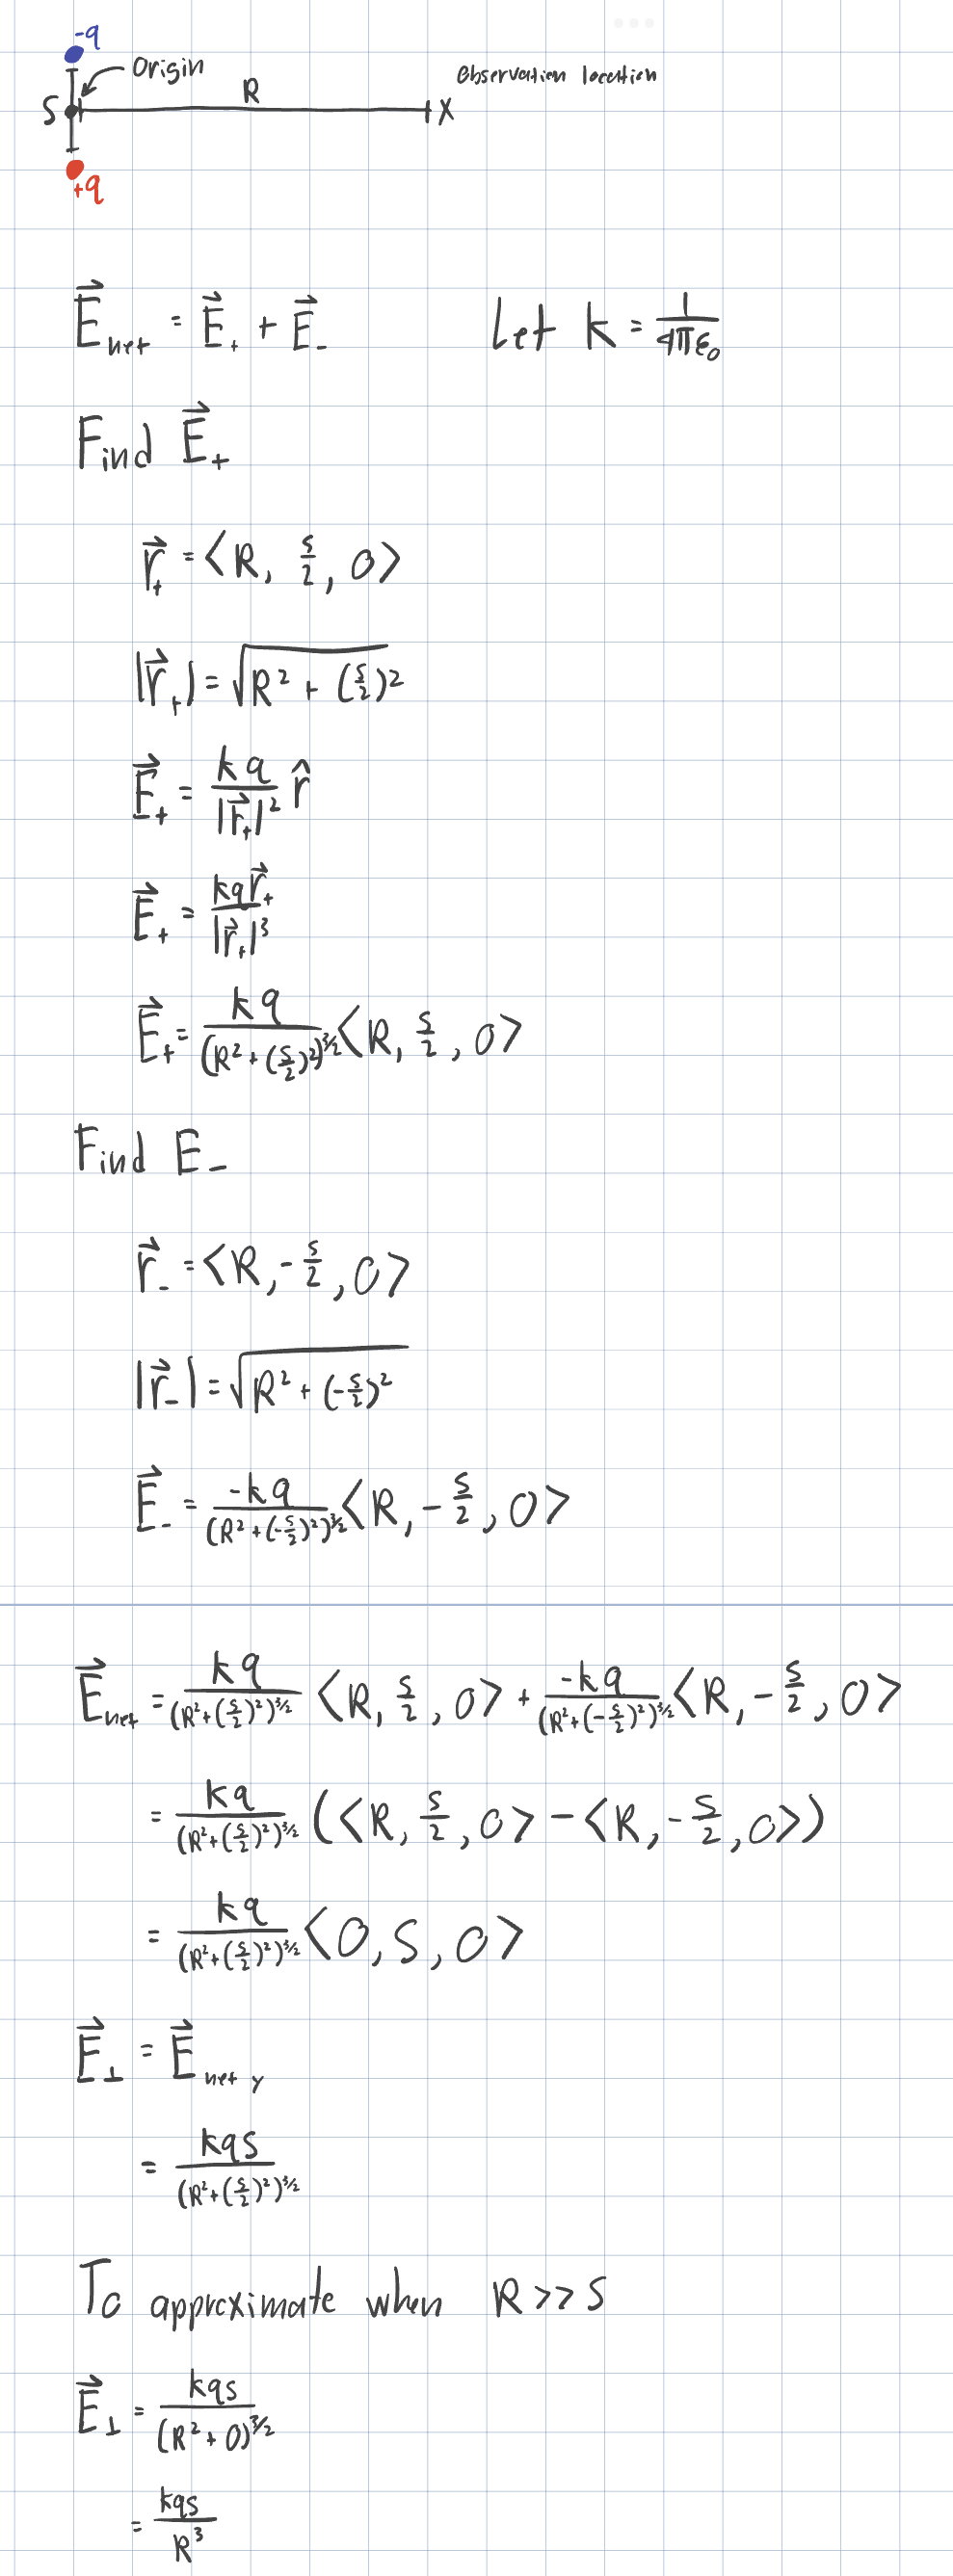 -q
Origin
Observation location
S
R
X
+q
E⃗_net = E⃗_+ + E⃗_-
Let k = 1/(4πε₀)
Find E⃗_+
r⃗_+ = <R, s/2, 0>
|r⃗_+| = √(R² + (s/2)²)
E⃗_+ = kq/|r⃗_+|² r̂
E⃗_+ = kq r⃗_+/|r⃗_+|³
E⃗_+ = kq/(R² + (s/2)²)^(3/2) <R, s/2, 0>
Find E_-
r⃗_- = <R, -s/2, 0>
|r⃗_-| = √(R² + (-s/2)²)
E⃗_- = -kq/(R² + (-s/2)²)^(3/2) <R, -s/2, 0>
E⃗_net = kq/(R² + (s/2)²)^(3/2) <R, s/2, 0> + -kq/(R² + (-s/2)²)^(3/2) <R, -s/2, 0>
= kq/(R² + (s/2)²)^(3/2) (<R, s/2, 0> - <R, -s/2, 0>)
= kq/(R² + (s/2)²)^(3/2) <0, S, 0>
E⃗_⊥ = E⃗_net y
= kqs/(R² + (s/2)²)^(3/2)
To approximate when R >> S
E⃗_⊥ = kqs/(R² + 0)^(3/2)
= kqs/R³